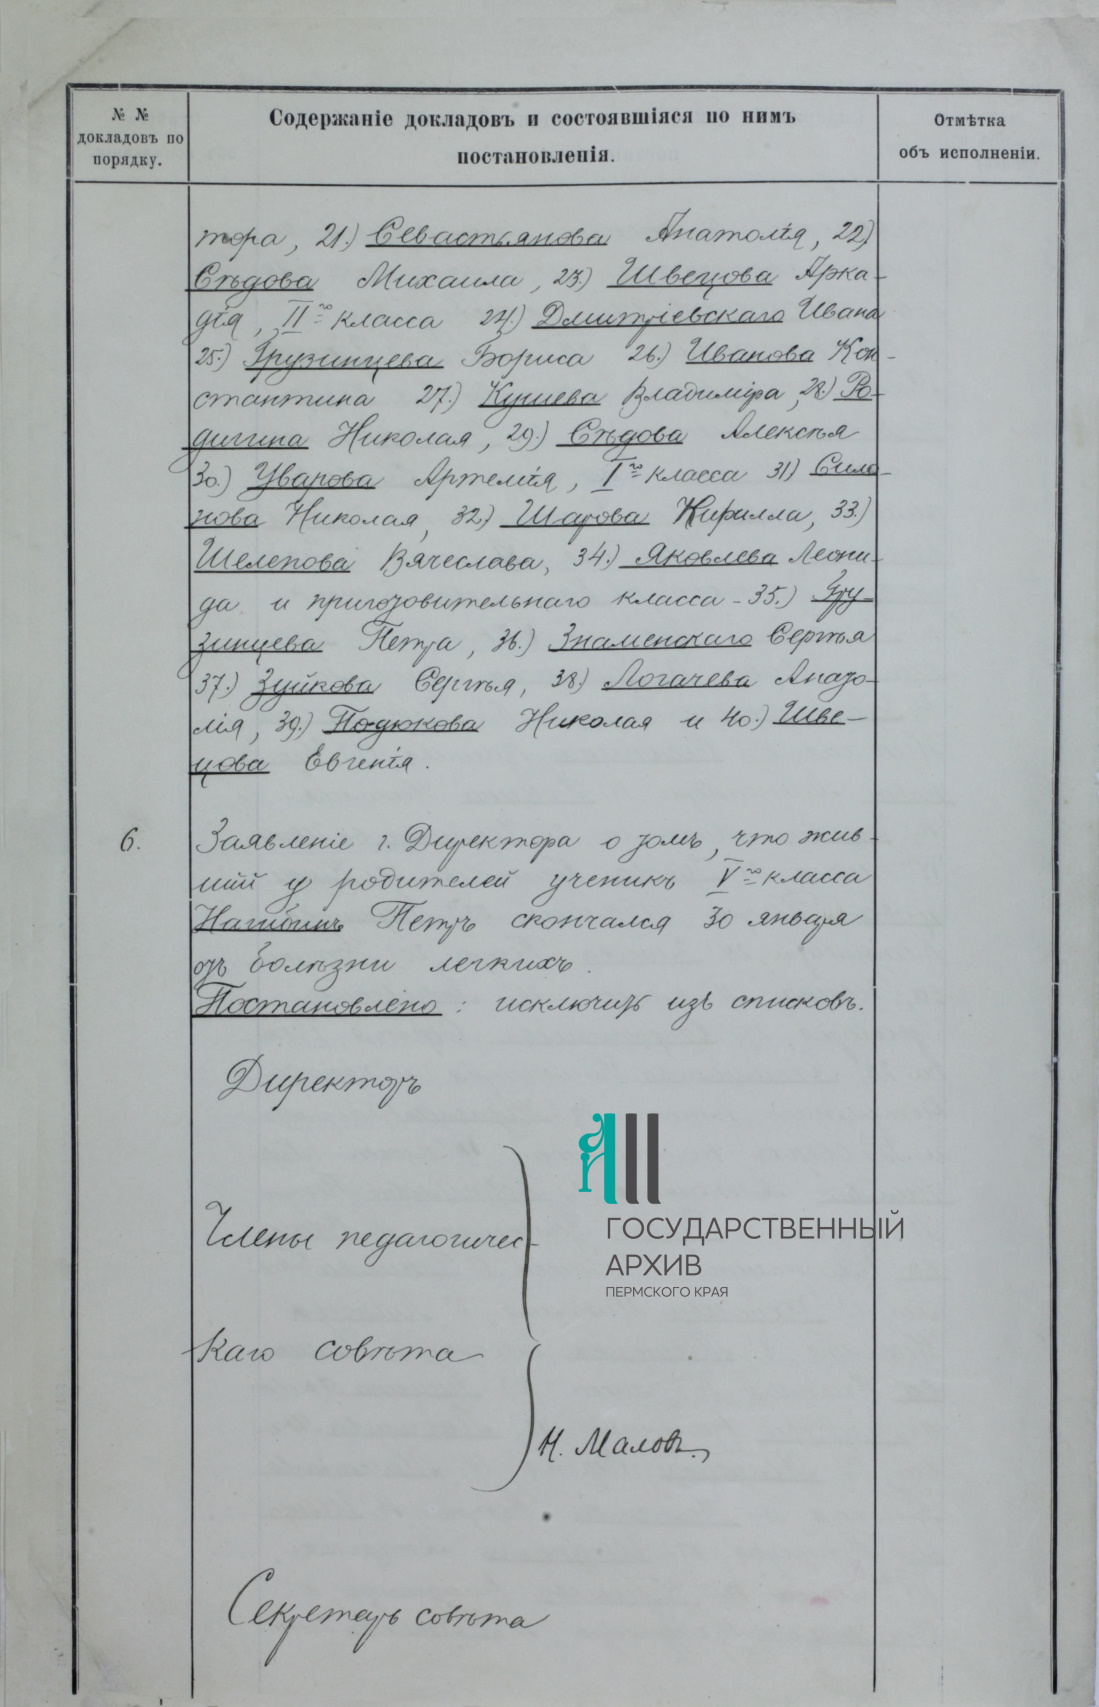 № №
докладовъ по
порядку.
Содержаніе докладовъ и состоявшіяся по нимъ
постановленія.
Отмѣтка
объ исполненіи.
тора, 21.) Севастьянова Анатолія, 22.)
Сѣдова Михаила, 23.) Швецова Арка-
дія, II го класса 24.) Дмитріевскаго Ивана
25.) Грузинцева Бориса 26.) Иванова Кон-
стантина 27.) Кушева Владиміра, 28.) Ро-
дигина Николая, 29.) Сѣдова Алексѣя
30.) Уварова Артемія, I го класса 31) Сила-
нова Николая, 32.) Шарова Кирилла, 33.)
Шелепова Вячеслава, 34.) Яковлева Леони-
да и приготовительнаго класса - 35.) Гру-
зинцева Петра, 36.) Знаменскаго Сергѣя
37.) Зуйкова Сергѣя, 38.) Логачева Анато-
лія, 39.) Подюкова Николая и 40.) Шве-
цова Евгенія.
6.
Заявленіе г. Директора о томъ, что жив-
шій у родителей ученикъ V го класса
Нагибинъ Петръ скончался 30 января
отъ болѣзни легкихъ.
Постановлено: исключить изъ списковъ.
Директоръ
Члены педагогичес-
каго совѣта
Н. Маловъ
Секретарь совѣта
ГОСУДАРСТВЕННЫЙ
АРХИВ
ПЕРМСКОГО КРАЯ